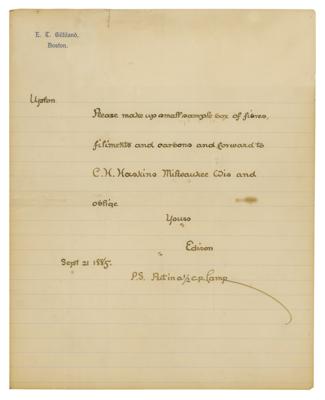 E. T. Gilliland,
Boston.
Upton
Please make up small sample box of fibres,
filiments and carbons and forward to
C. H. Haskins Milwaukee Wis and
oblige
Yours
Edison
Sept 21 1885.
P.S. Put in a ½ c.p. Lamp